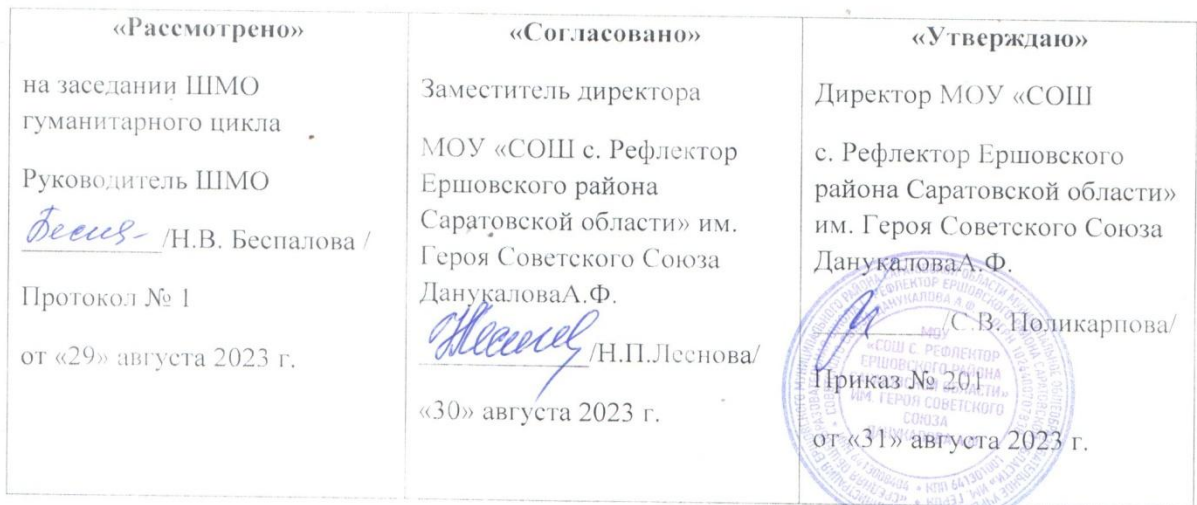 «Рассмотрено»
на заседании ШМО
гуманитарного цикла
Руководитель ШМО
/Н.В. Беспалова /
Протокол № 1
от «29» августа 2023 г.
«Согласовано»
Заместитель директора
МОУ «СОШ с. Рефлектор
Ершовского района
Саратовской области» им.
Героя Советского Союза
ДанукаловаА.Ф.
/Н.П.Леснова/
«30» августа 2023 г.
«Утверждаю»
Директор МОУ «СОШ
с. Рефлектор Ершовского
района Саратовской области»
им. Героя Советского Союза
ДанукаловаА.Ф.
/С.В. Поликарпова/
Приказ № 201
от «31» августа 2023 г.
МОУ
«СОШ С. РЕФЛЕКТОР
ЕРШОВСКОГО РАЙОНА
САРАТОВСКОЙ ОБЛАСТИ»
ИМ. ГЕРОЯ СОВЕТСКОГО
СОЮЗА